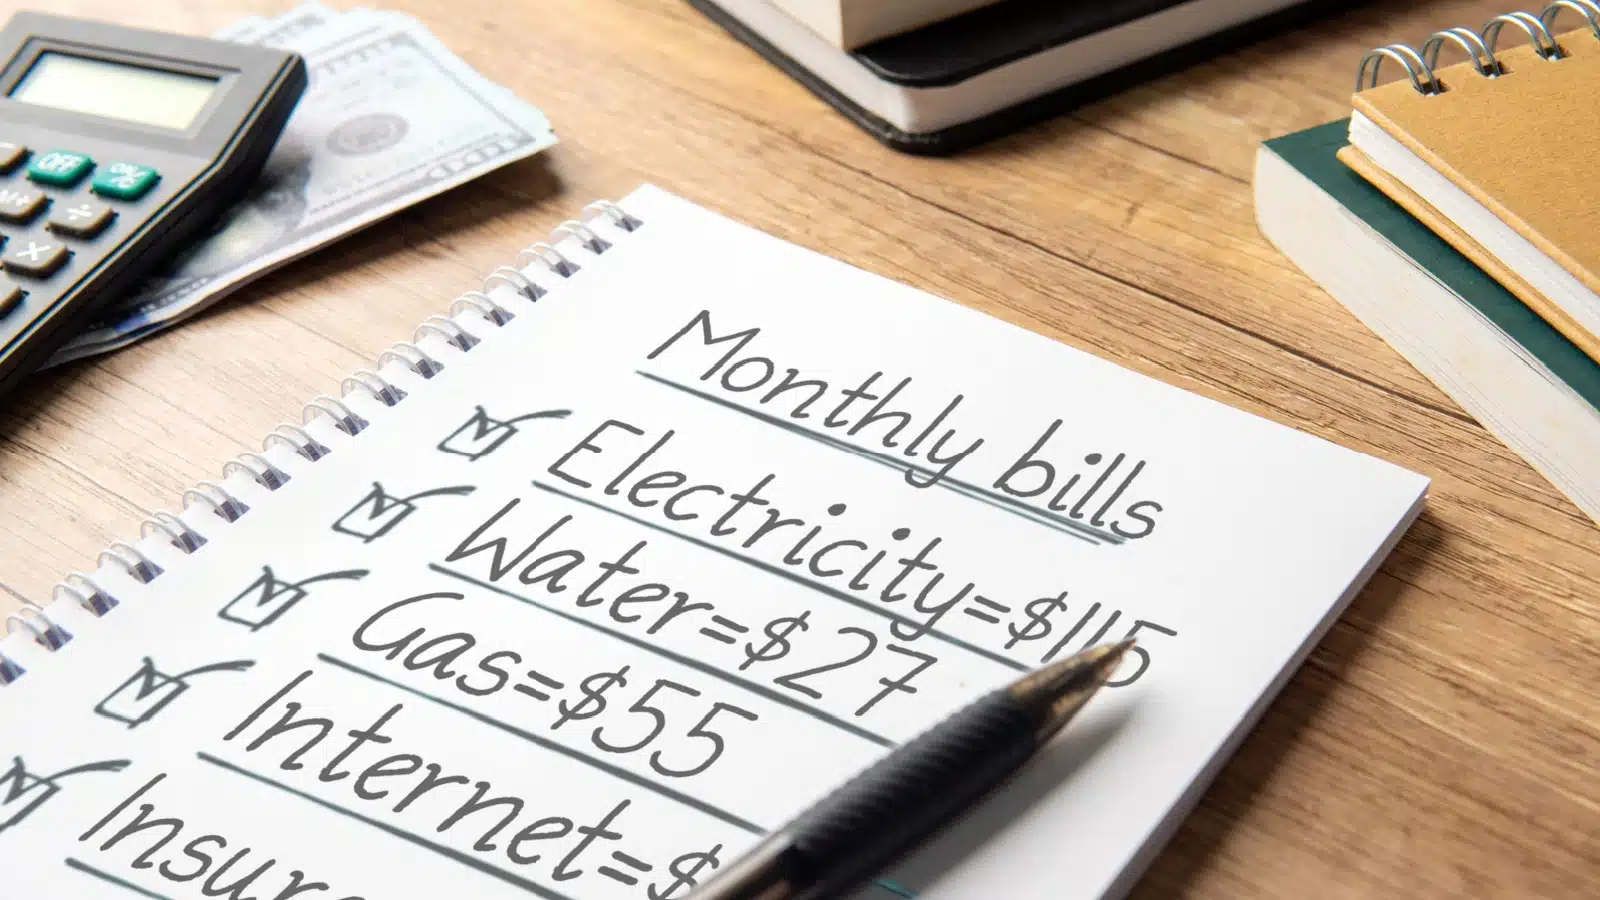 Monthly bills
Electricity=$115
Water=$27
Gas=$55
Internet=$
OFF
ON/C
M+
÷
×